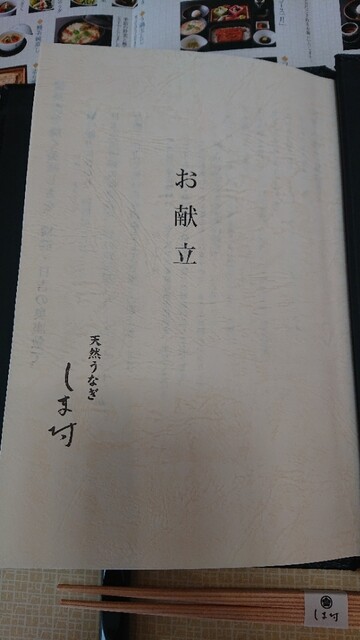 お献立
天然うなぎ
しま村
しま村